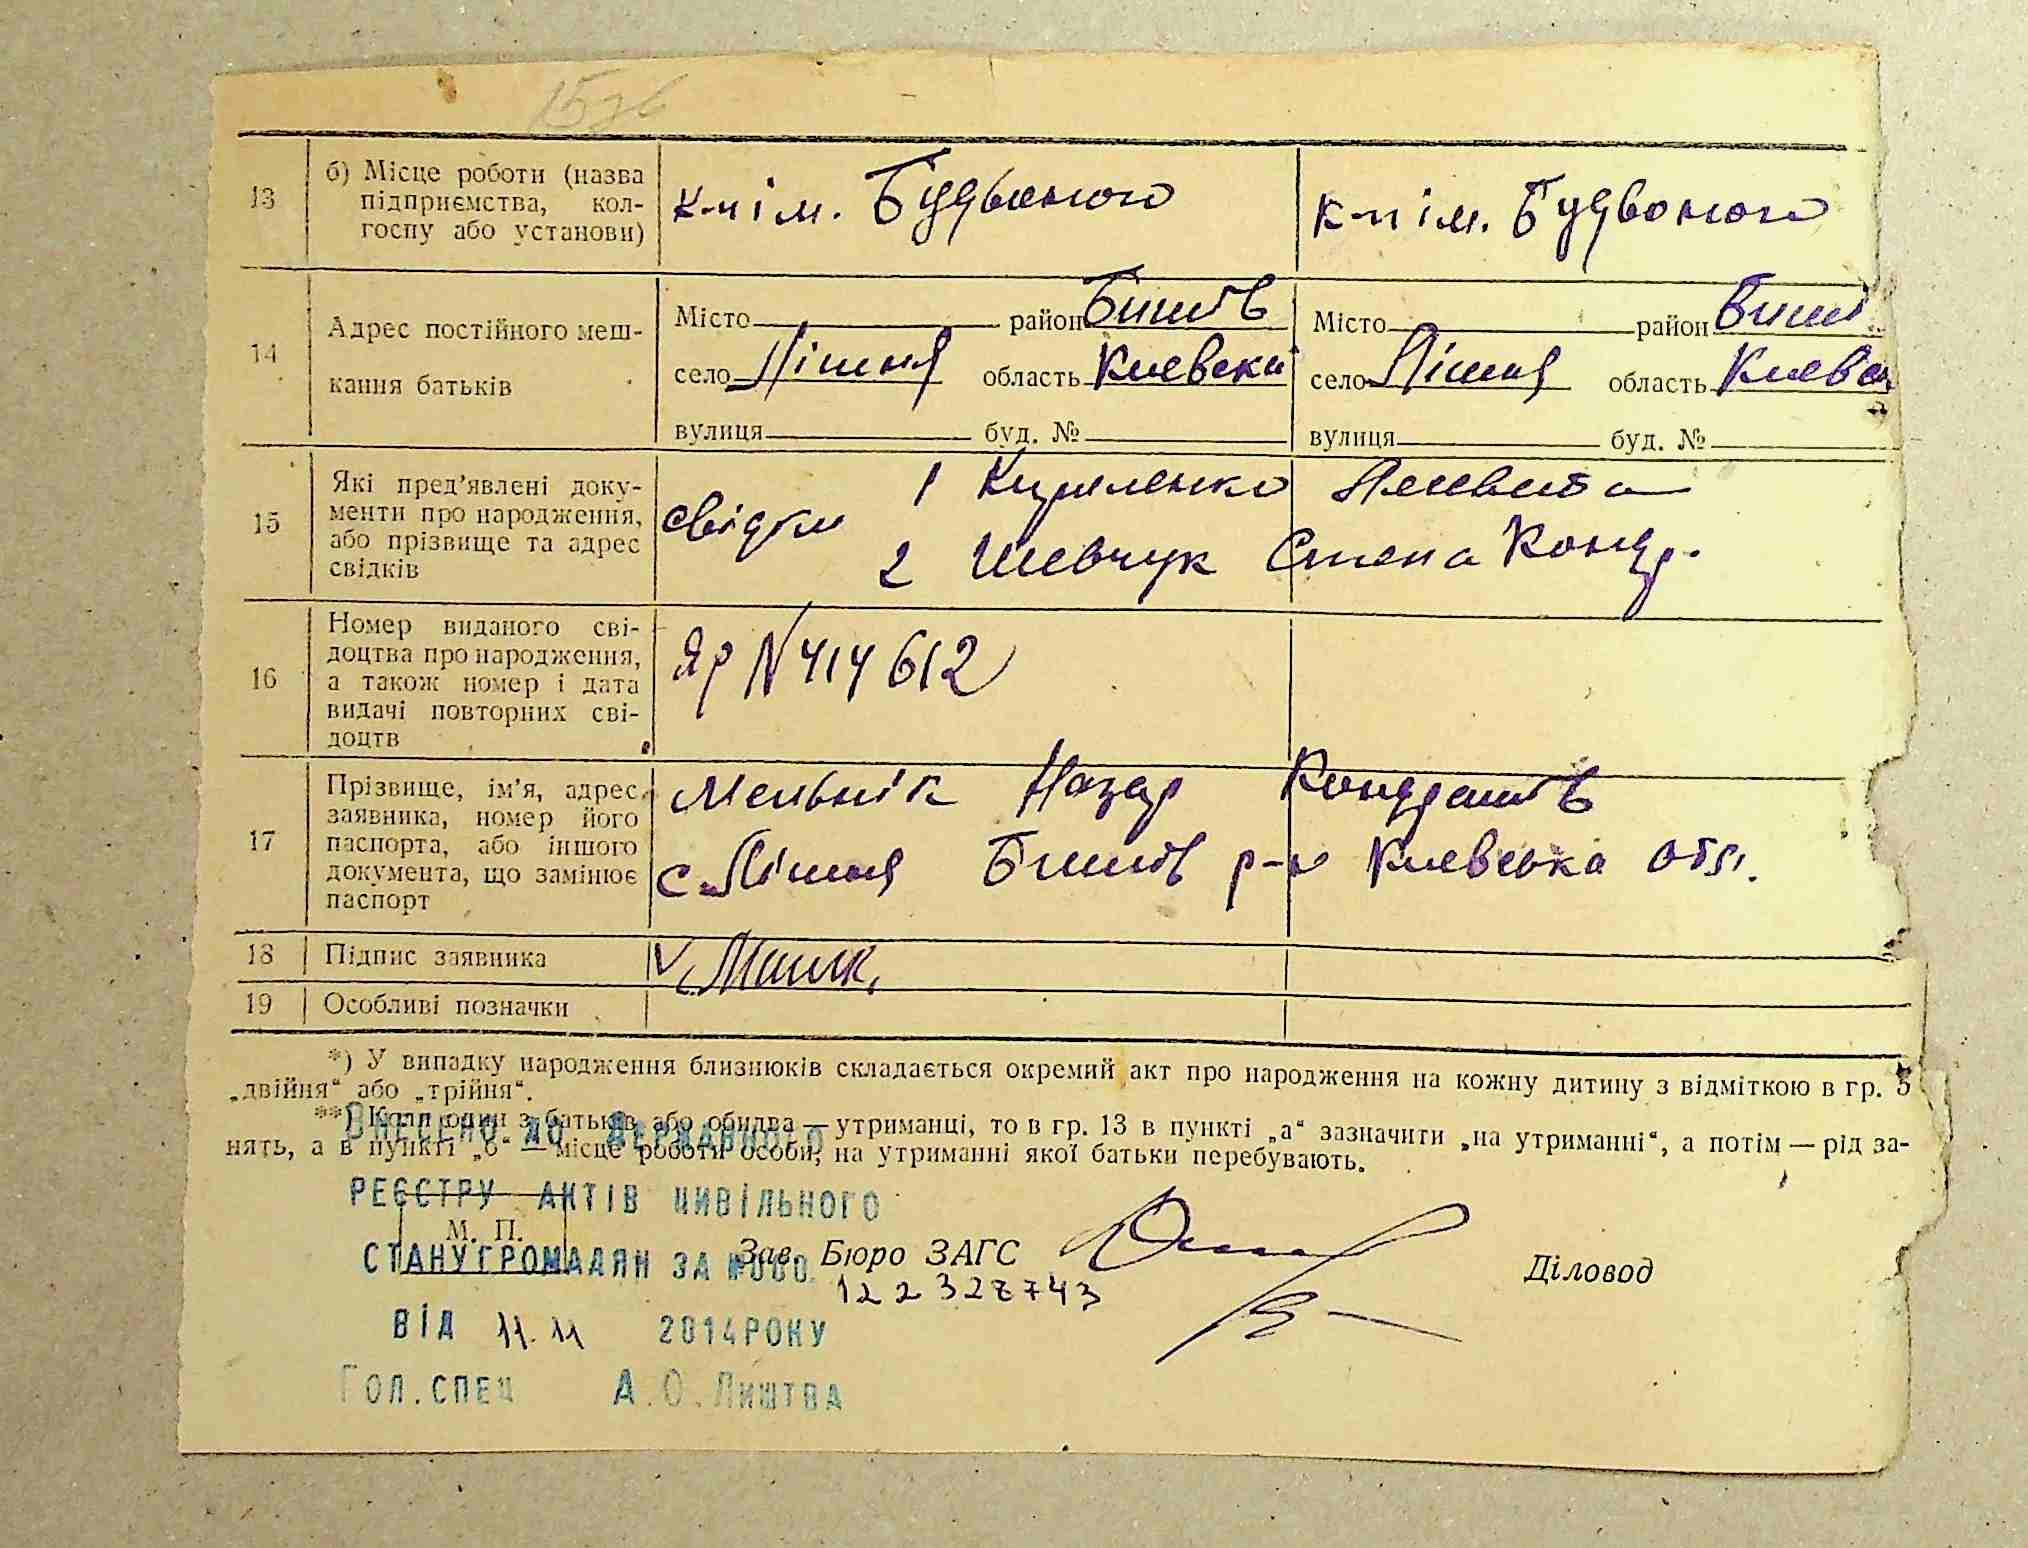 13
б) Місце роботи (назва
підприємства, кол-
госпу або установи)
к-п ім. Будьоного
к-п ім. Будьоного
14
Адрес постійного меш-
кання батьків
Місто район Бишів
село Лішня область Киевска
вулиця буд. №
Місто район Биш
село Лішня область Киевс
вулиця буд. №
15
Які пред'явлені доку-
менти про народження,
або прізвище та адрес
свідків
свідки 1 Куриленко
2 Шевчук Степа Кондр.
16
Номер виданого сві-
доцтва про народження,
а також номер і дата
видачі повторних сві-
доцтв
Яр N 414612
17
Прізвище, ім'я, адрес
заявника, номер його
паспорта, або іншого
документа, що замінює
паспорт
Мельнік Назар Кондратів
с. Лішня Бишів р-н Киевська обл.
18 Підпис заявника
19 Особливі позначки
*) У випадку народження близнюків складається окремий акт про народження на кожну дитину з відміткою в гр. 5
„двійня“ або „трійня“.
**) Коли один з батьків або обидва — утриманці, то в гр. 13 в пункті „а“ зазначити „на утриманні“, а потім — рід за-
нять, а в пункті „б“ — місце роботи особи, на утриманні якої батьки перебувають.
ВНЕСЕНО ДО ДЕРЖАВНОГО
РЕЄСТРУ АКТІВ ЦИВІЛЬНОГО
М. П.
СТАНУ ГРОМАДЯН ЗА №000
Зав. Бюро ЗАГС
Діловод
122327743
ВІД 11.11 2014РОКУ
ГОЛ.СПЕЦ А.О.ЛИШТВА